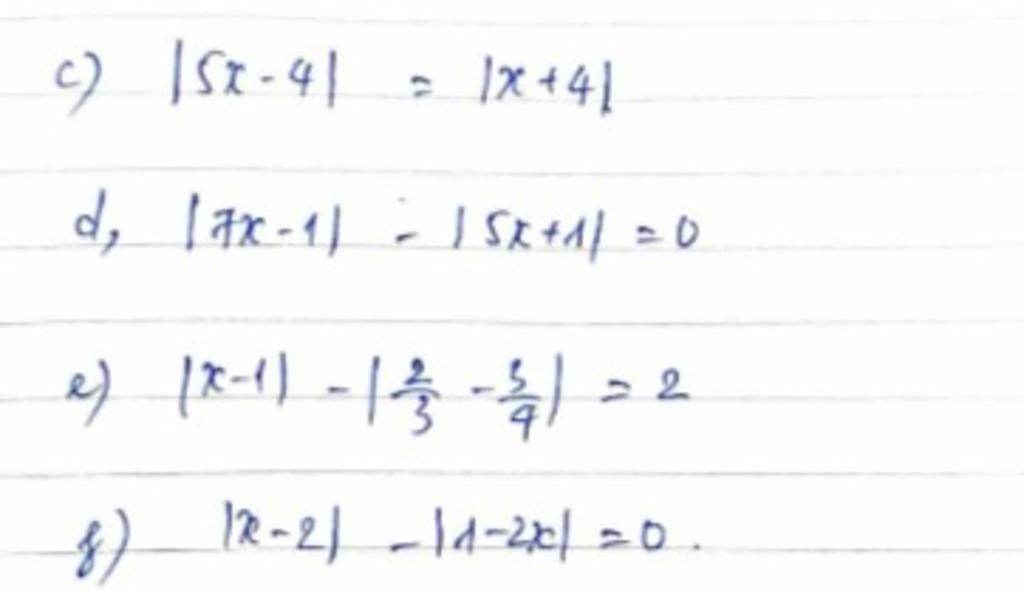 c) |5x-4| = |x+4|
d, |7x-1| - |5x+1| = 0
e) |x-1| - |2/3 - 5/4| = 2
f) |x-2| - |1-2x| = 0.